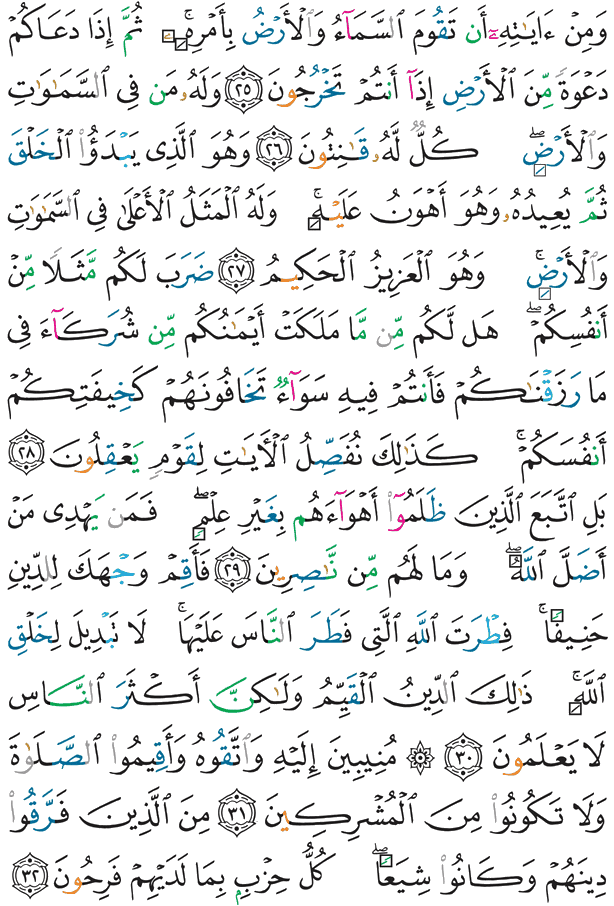 وَمِنْ ءَايَـٰتِهِۦٓ أَن تَقُومَ ٱلسَّمَآءُ وَٱلْأَرْضُ بِأَمْرِهِۦ ۚ ثُمَّ إِذَا دَعَاكُمْ
دَعْوَةً مِّنَ ٱلْأَرْضِ إِذَآ أَنتُمْ تَخْرُجُونَ ﴿٢٥﴾ وَلَهُۥ مَن فِى ٱلسَّمَـٰوَٰتِ
وَٱلْأَرْضِ ۖ كُلٌّ لَّهُۥ قَـٰنِتُونَ ﴿٢٦﴾ وَهُوَ ٱلَّذِى يَبْدَؤُا۟ ٱلْخَلْقَ
ثُمَّ يُعِيدُهُۥ وَهُوَ أَهْوَنُ عَلَيْهِ ۚ وَلَهُ ٱلْمَثَلُ ٱلْأَعْلَىٰ فِى ٱلسَّمَـٰوَٰتِ
وَٱلْأَرْضِ ۚ وَهُوَ ٱلْعَزِيزُ ٱلْحَكِيمُ ﴿٢٧﴾ ضَرَبَ لَكُم مَّثَلًا مِّنْ
أَنفُسِكُمْ ۖ هَل لَّكُم مِّن مَّا مَلَكَتْ أَيْمَـٰنُكُم مِّن شُرَكَآءَ فِى
مَا رَزَقْنَـٰكُمْ فَأَنتُمْ فِيهِ سَوَآءٌ تَخَافُونَهُمْ كَخِيفَتِكُمْ
أَنفُسَكُمْ ۚ كَذَٰلِكَ نُفَصِّلُ ٱلْـَٔايَـٰتِ لِقَوْمٍ يَعْقِلُونَ ﴿٢٨﴾
بَلِ ٱتَّبَعَ ٱلَّذِينَ ظَلَمُوٓا۟ أَهْوَآءَهُم بِغَيْرِ عِلْمٍ ۖ فَمَن يَهْدِى مَنْ
أَضَلَّ ٱللَّهُ ۖ وَمَا لَهُم مِّن نَّـٰصِرِينَ ﴿٢٩﴾ فَأَقِمْ وَجْهَكَ لِلدِّينِ
حَنِيفًا ۚ فِطْرَتَ ٱللَّهِ ٱلَّتِى فَطَرَ ٱلنَّاسَ عَلَيْهَا ۚ لَا تَبْدِيلَ لِخَلْقِ
ٱللَّهِ ۚ ذَٰلِكَ ٱلدِّينُ ٱلْقَيِّمُ وَلَـٰكِنَّ أَكْثَرَ ٱلنَّاسِ
لَا يَعْلَمُونَ ﴿٣٠﴾ ۞ مُنِيبِينَ إِلَيْهِ وَٱتَّقُوهُ وَأَقِيمُوا۟ ٱلصَّلَوٰةَ
وَلَا تَكُونُوا۟ مِنَ ٱلْمُشْرِكِينَ ﴿٣١﴾ مِنَ ٱلَّذِينَ فَرَّقُوا۟
دِينَهُمْ وَكَانُوا۟ شِيَعًا ۖ كُلُّ حِزْبٍۭ بِمَا لَدَيْهِمْ فَرِحُونَ ﴿٣٢﴾